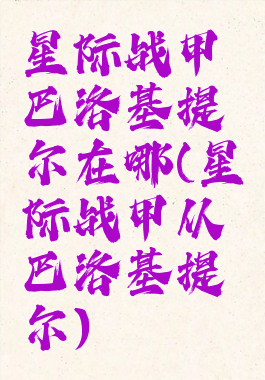 星际战甲
巴洛基提
尔在哪(星
际战甲从
巴洛基提
尔)